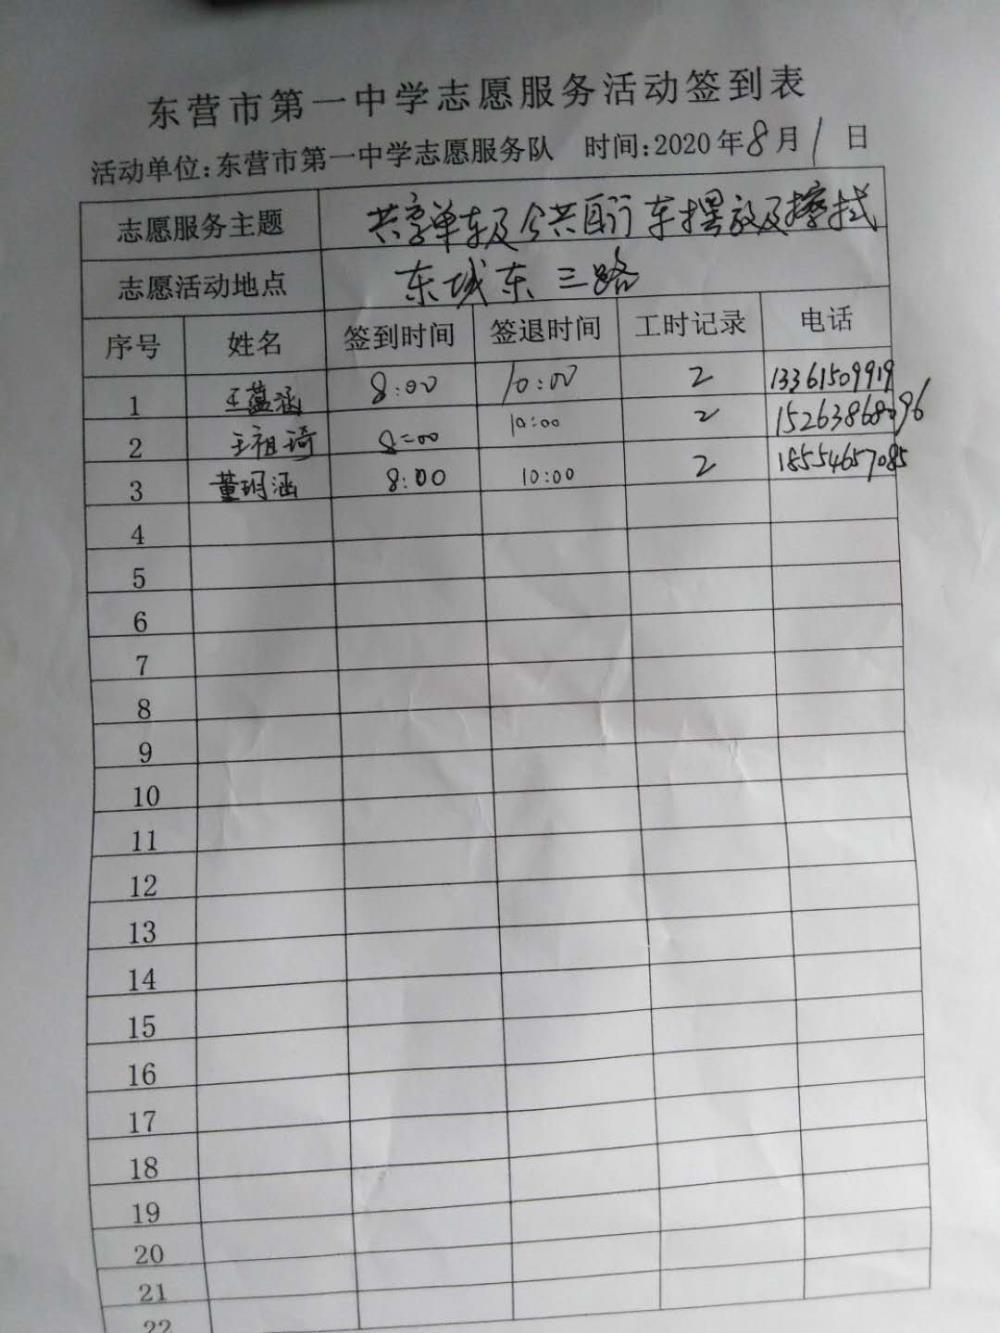 东营市第一中学志愿服务活动签到表
活动单位:东营市第一中学志愿服务队 时间:2020年8月1日
志愿服务主题 共享单车及公共自行车摆放及擦拭
志愿活动地点 东城东三路
序号 姓名 签到时间 签退时间 工时记录 电话
1 王蕴涵 8:00 10:00 2 13361509919
2 王祖琦 8:00 10:00 2
3 董玥涵 8:00 10:00 2 18554657085
4
5
6
7
8
9
10
11
12
13
14
15
16
17
18
19
20
21
22